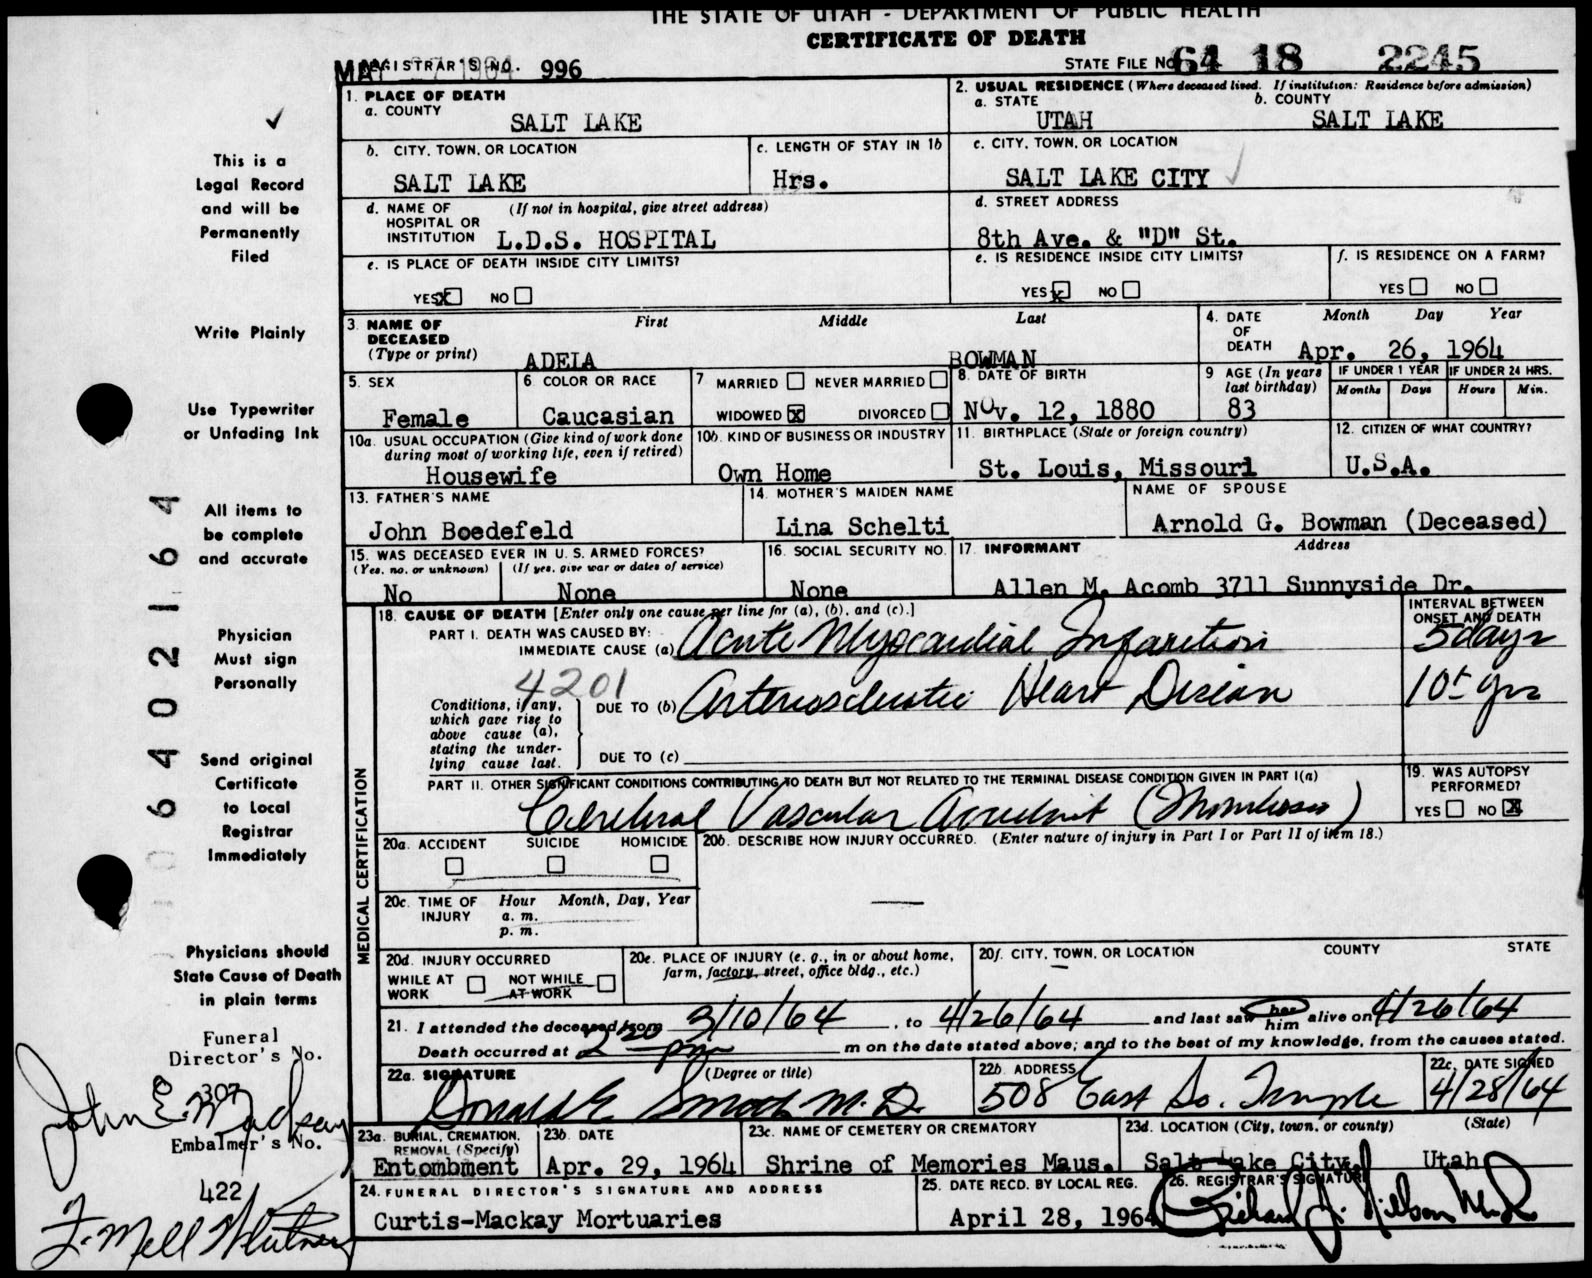 THE STATE OF UTAH - DEPARTMENT OF PUBLIC HEALTH
CERTIFICATE OF DEATH
REGISTRAR'S NO. 996
MAY 27 1964
STATE FILE NO. 64 18 2245
This is a
Legal Record
and will be
Permanently
Filed
Write Plainly
Use Typewriter
or Unfading Ink
All items to
be complete
and accurate
Physician
Must sign
Personally
Send original
Certificate
to Local
Registrar
Immediately
Physicians should
State Cause of Death
in plain terms
Funeral
Director's No.
307
John E. Mackay
Embalmer's No.
422
F. Mell Whitney
06402164
1. PLACE OF DEATH
a. COUNTY
SALT LAKE
2. USUAL RESIDENCE (Where deceased lived. If institution: Residence before admission)
a. STATE b. COUNTY
UTAH SALT LAKE
b. CITY, TOWN, OR LOCATION
SALT LAKE
c. LENGTH OF STAY IN 1b
Hrs.
c. CITY, TOWN, OR LOCATION
SALT LAKE CITY
d. NAME OF (If not in hospital, give street address)
HOSPITAL OR
INSTITUTION L.D.S. HOSPITAL
d. STREET ADDRESS
8th Ave. & "D" St.
e. IS PLACE OF DEATH INSIDE CITY LIMITS?
YES X NO
e. IS RESIDENCE INSIDE CITY LIMITS?
YES X NO
f. IS RESIDENCE ON A FARM?
YES NO
3. NAME OF DECEASED (Type or print)
First Middle Last
ADELA BOWMAN
4. DATE OF DEATH
Month Day Year
Apr. 26, 1964
5. SEX
Female
6. COLOR OR RACE
Caucasian
7 MARRIED NEVER MARRIED
WIDOWED X DIVORCED
8. DATE OF BIRTH
Nov. 12, 1880
9 AGE (In years last birthday)
83
IF UNDER 1 YEAR
Months Days
IF UNDER 24 HRS.
Hours Min.
10a. USUAL OCCUPATION (Give kind of work done
during most of working life, even if retired)
Housewife
10b. KIND OF BUSINESS OR INDUSTRY
Own Home
11. BIRTHPLACE (State or foreign country)
St. Louis, Missouri
12. CITIZEN OF WHAT COUNTRY?
U.S.A.
13. FATHER'S NAME
John Boedefeld
14. MOTHER'S MAIDEN NAME
Lina Schelti
NAME OF SPOUSE
Arnold G. Bowman (Deceased)
15. WAS DECEASED EVER IN U. S. ARMED FORCES?
(Yes, no, or unknown) (If yes, give war or dates of service)
No None
16. SOCIAL SECURITY NO.
None
17. INFORMANT Address
Allen M. Acomb 3711 Sunnyside Dr.
MEDICAL CERTIFICATION
18. CAUSE OF DEATH [Enter only one cause per line for (a), (b), and (c).]
INTERVAL BETWEEN
ONSET AND DEATH
PART I. DEATH WAS CAUSED BY:
IMMEDIATE CAUSE (a) Acute Myocardial Infarction 5 days
4201
Conditions, if any,
which gave rise to
above cause (a),
stating the under-
lying cause last.
DUE TO (b) Arteriosclerotic Heart Disease 10+ yrs
DUE TO (c)
PART II. OTHER SIGNIFICANT CONDITIONS CONTRIBUTING TO DEATH BUT NOT RELATED TO THE TERMINAL DISEASE CONDITION GIVEN IN PART I(a)
Cerebral Vascular Accident (Thrombosis)
19. WAS AUTOPSY
PERFORMED?
YES NO X
20a. ACCIDENT SUICIDE HOMICIDE
20b. DESCRIBE HOW INJURY OCCURRED. (Enter nature of injury in Part I or Part II of item 18.)
20c. TIME OF INJURY
Hour Month, Day, Year
a. m.
p. m.
20d. INJURY OCCURRED
WHILE AT WORK NOT WHILE AT WORK
20e. PLACE OF INJURY (e. g., in or about home,
farm, factory, street, office bldg., etc.)
20f. CITY, TOWN, OR LOCATION COUNTY STATE
21. I attended the deceased from 3/10/64, to 4/26/64 and last saw her him alive on 4/26/64
Death occurred at 2 20 pm m on the date stated above; and to the best of my knowledge, from the causes stated.
22a. SIGNATURE (Degree or title)
Donald E. Smoot M.D.
22b. ADDRESS
508 East So. Temple
22c. DATE SIGNED
4/28/64
23a. BURIAL, CREMATION,
REMOVAL (Specify)
Entombment
23b. DATE
Apr. 29, 1964
23c. NAME OF CEMETERY OR CREMATORY
Shrine of Memories Maus.
23d. LOCATION (City, town, or county) (State)
Salt Lake City, Utah
24. FUNERAL DIRECTOR'S SIGNATURE AND ADDRESS
Curtis-Mackay Mortuaries
25. DATE RECD. BY LOCAL REG.
April 28, 1964
26. REGISTRAR'S SIGNATURE